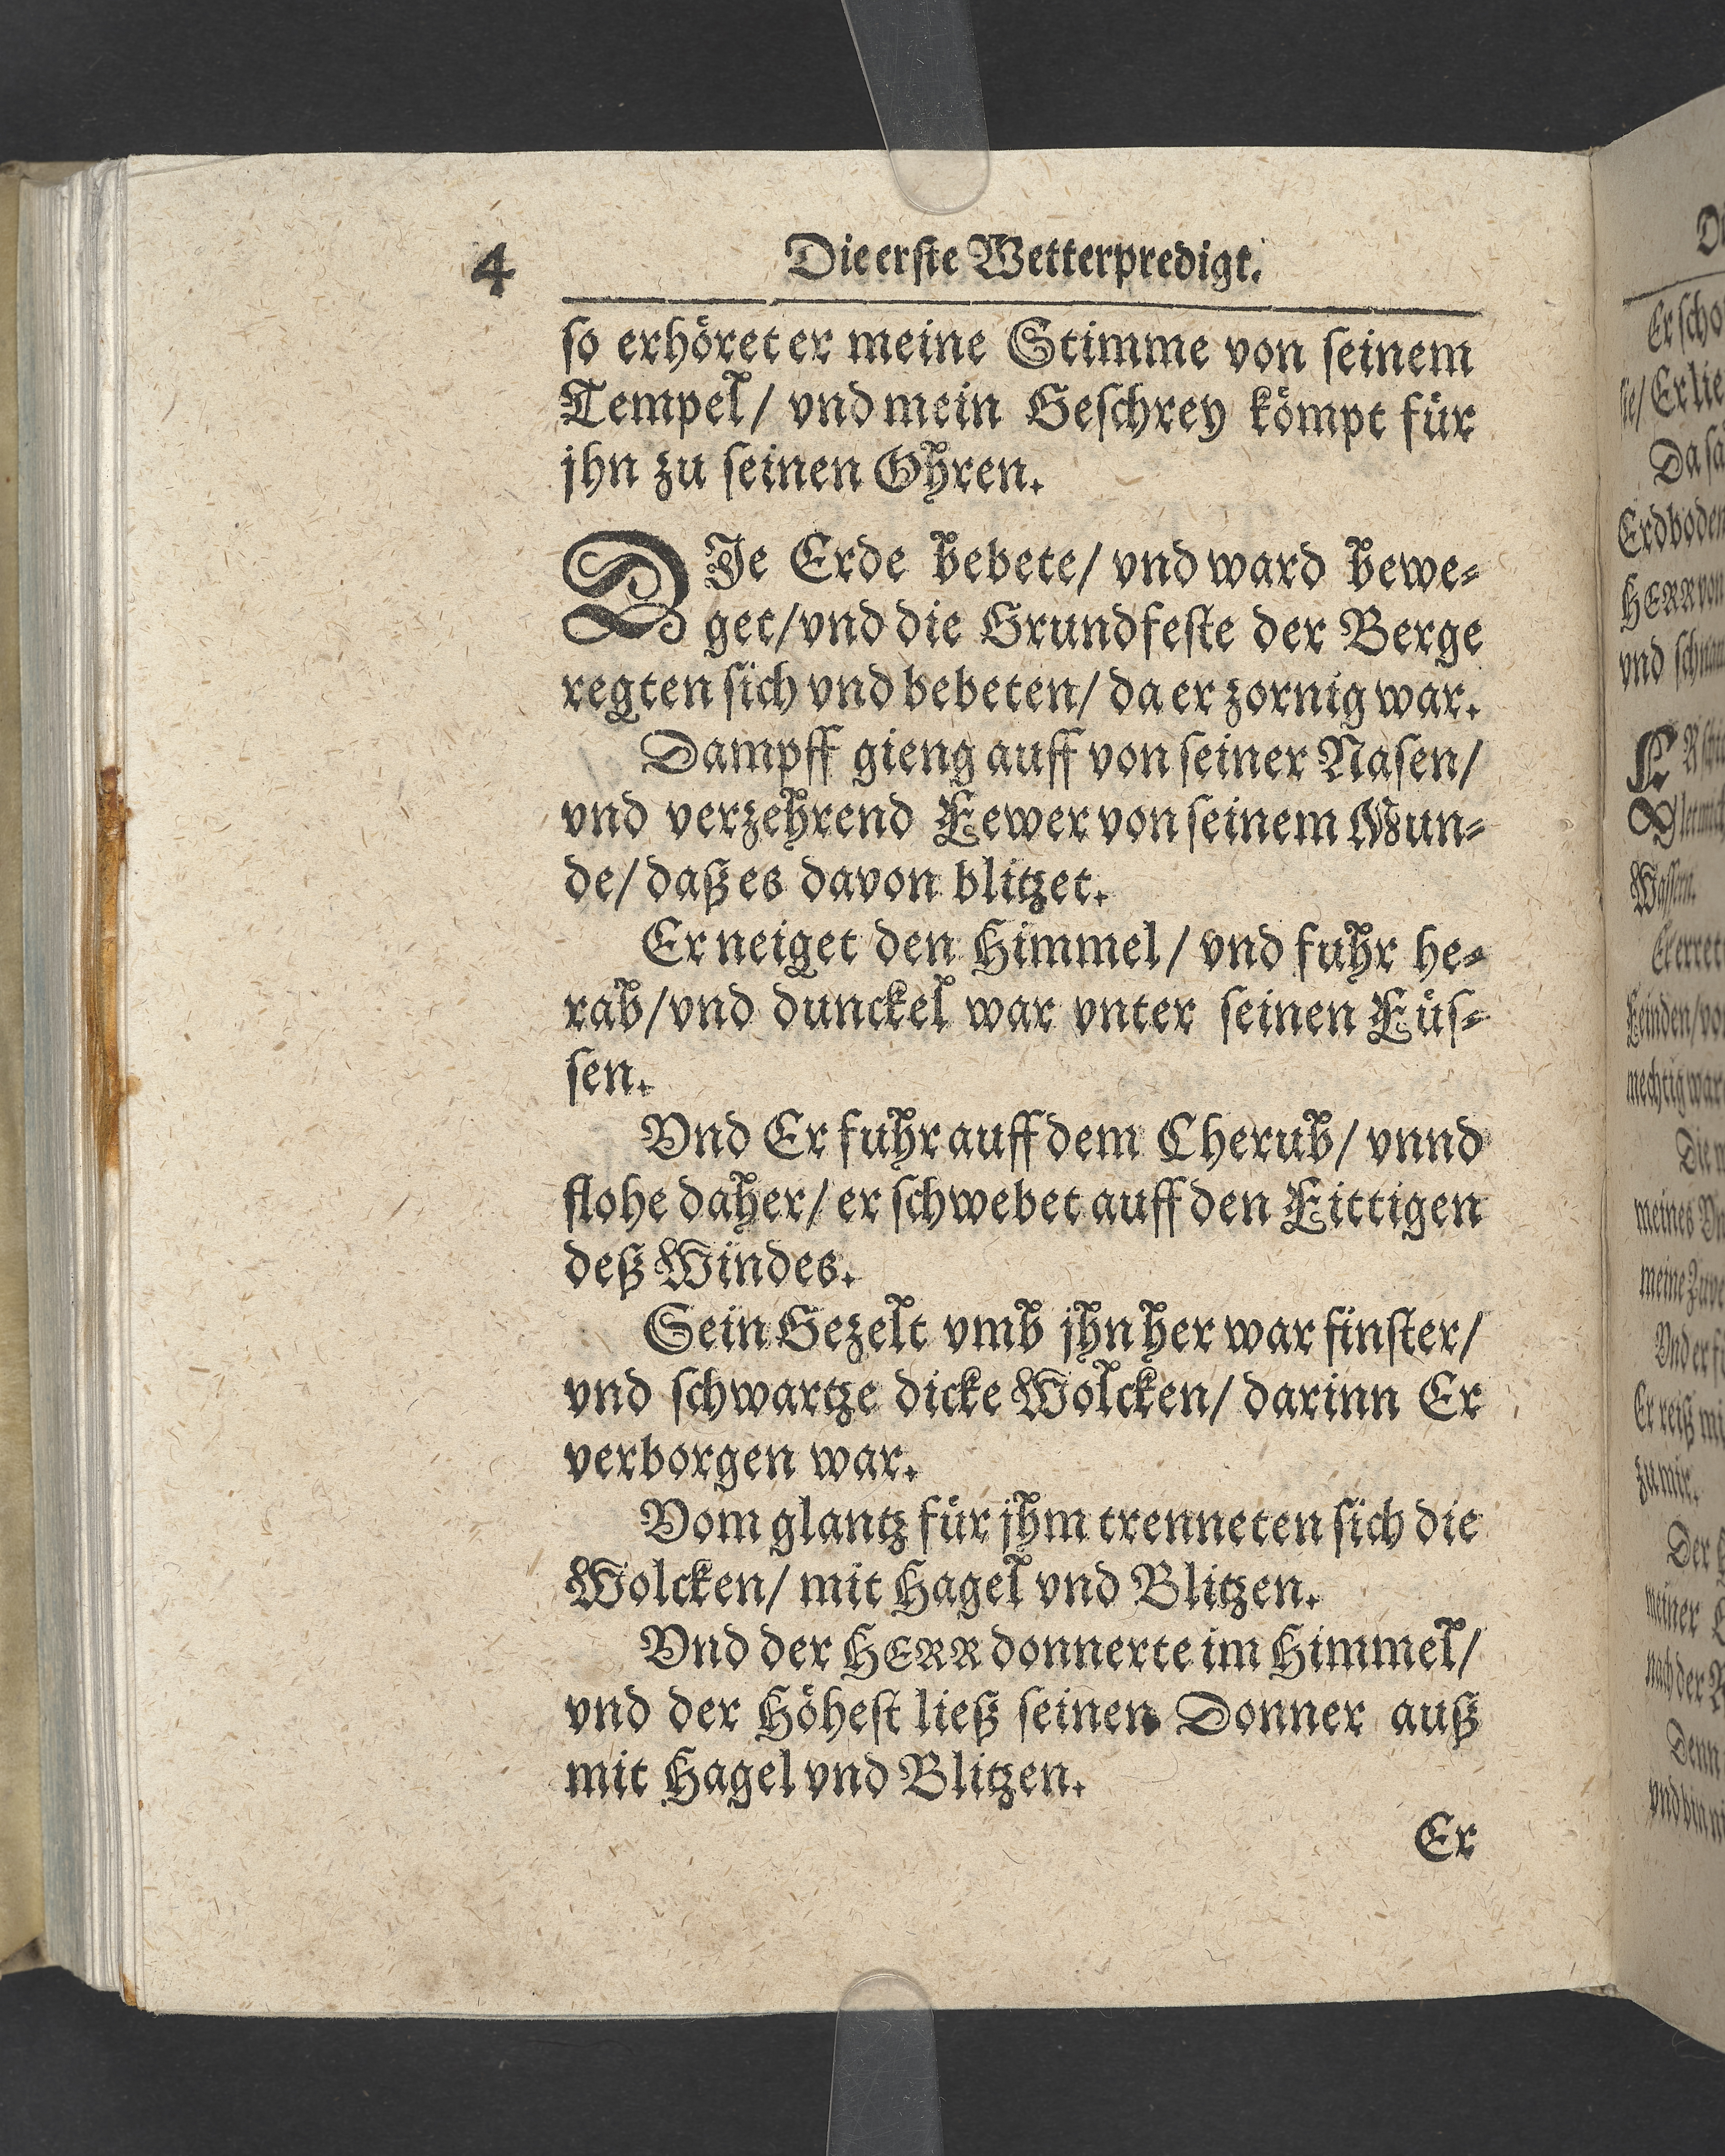 4 Die erste Wetterpredigt.
so erhöret er meine Stimme von seinem
Tempel/ vnd mein Geschrey kömpt für
jhn zu seinen Ohren.
DIe Erde bebete/ vnd ward bewe-
get/ vnd die Grundfeste der Berge
regten sich vnd bebeten/ da er zornig war.
Dampff gieng auff von seiner Nasen/
vnd verzehrend Fewer von seinem Mun-
de/ daß es davon blitzet.
Er neiget den Himmel/ vnd fuhr he-
rab/ vnd dunckel war vnter seinen Füs-
sen.
Vnd Er fuhr auff dem Cherub/ vnnd
flohe daher/ er schwebet auff den Fittigen
deß Windes.
Sein Gezelt vmb jhn her war finster/
vnd schwartze dicke Wolcken/ darinn Er
verborgen war.
Vom glantz für jhm trenneten sich die
Wolcken/ mit Hagel vnd Blitzen.
Vnd der HERR donnerte im Himmel/
vnd der Höhest ließ seinen Donner auß
mit Hagel vnd Blitzen.
Er
Er scho
sie/ Er lie
Da sa
Erdboden
HERR von
vnd schnau
Wassern.
Er erret
Feinden/ vo
mechtig war
Die
meines Vn
meine Zuve
Vnd er fü
Er reiß mi
zu mir.
Der
meiner
nach der R
Denn
vnd bin ni